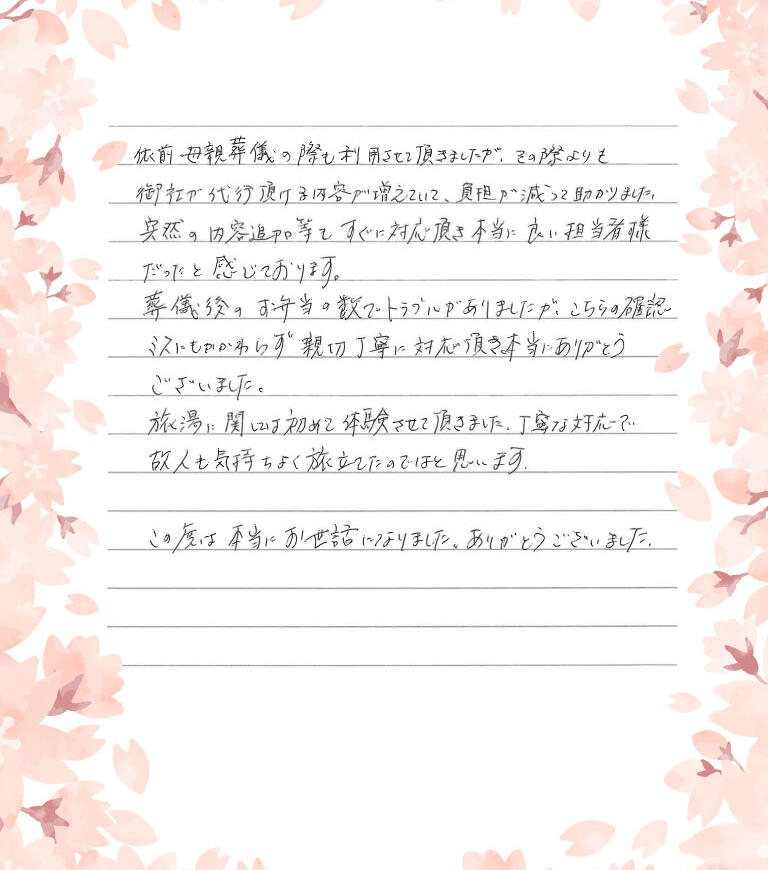 依前母親葬儀の際も利用させて頂きましたが、その際よりも
御社が代行頂ける内容が増えていて、負担が減って助かりました。
突然の内容追加等もすぐに対応頂き本当に良い担当者様
だったと感じております。
葬儀後のお弁当の数でトラブルがありましたが、こちらの確認
ミスにもかかわらず親切丁寧に対応頂き本当にありがとう
ございました。
旅湯に関しては初めて体験させて頂きました。丁寧な対応で
故人も気持ちよく旅立てたのではと思います。
この度は本当にお世話になりました。ありがとうございました。